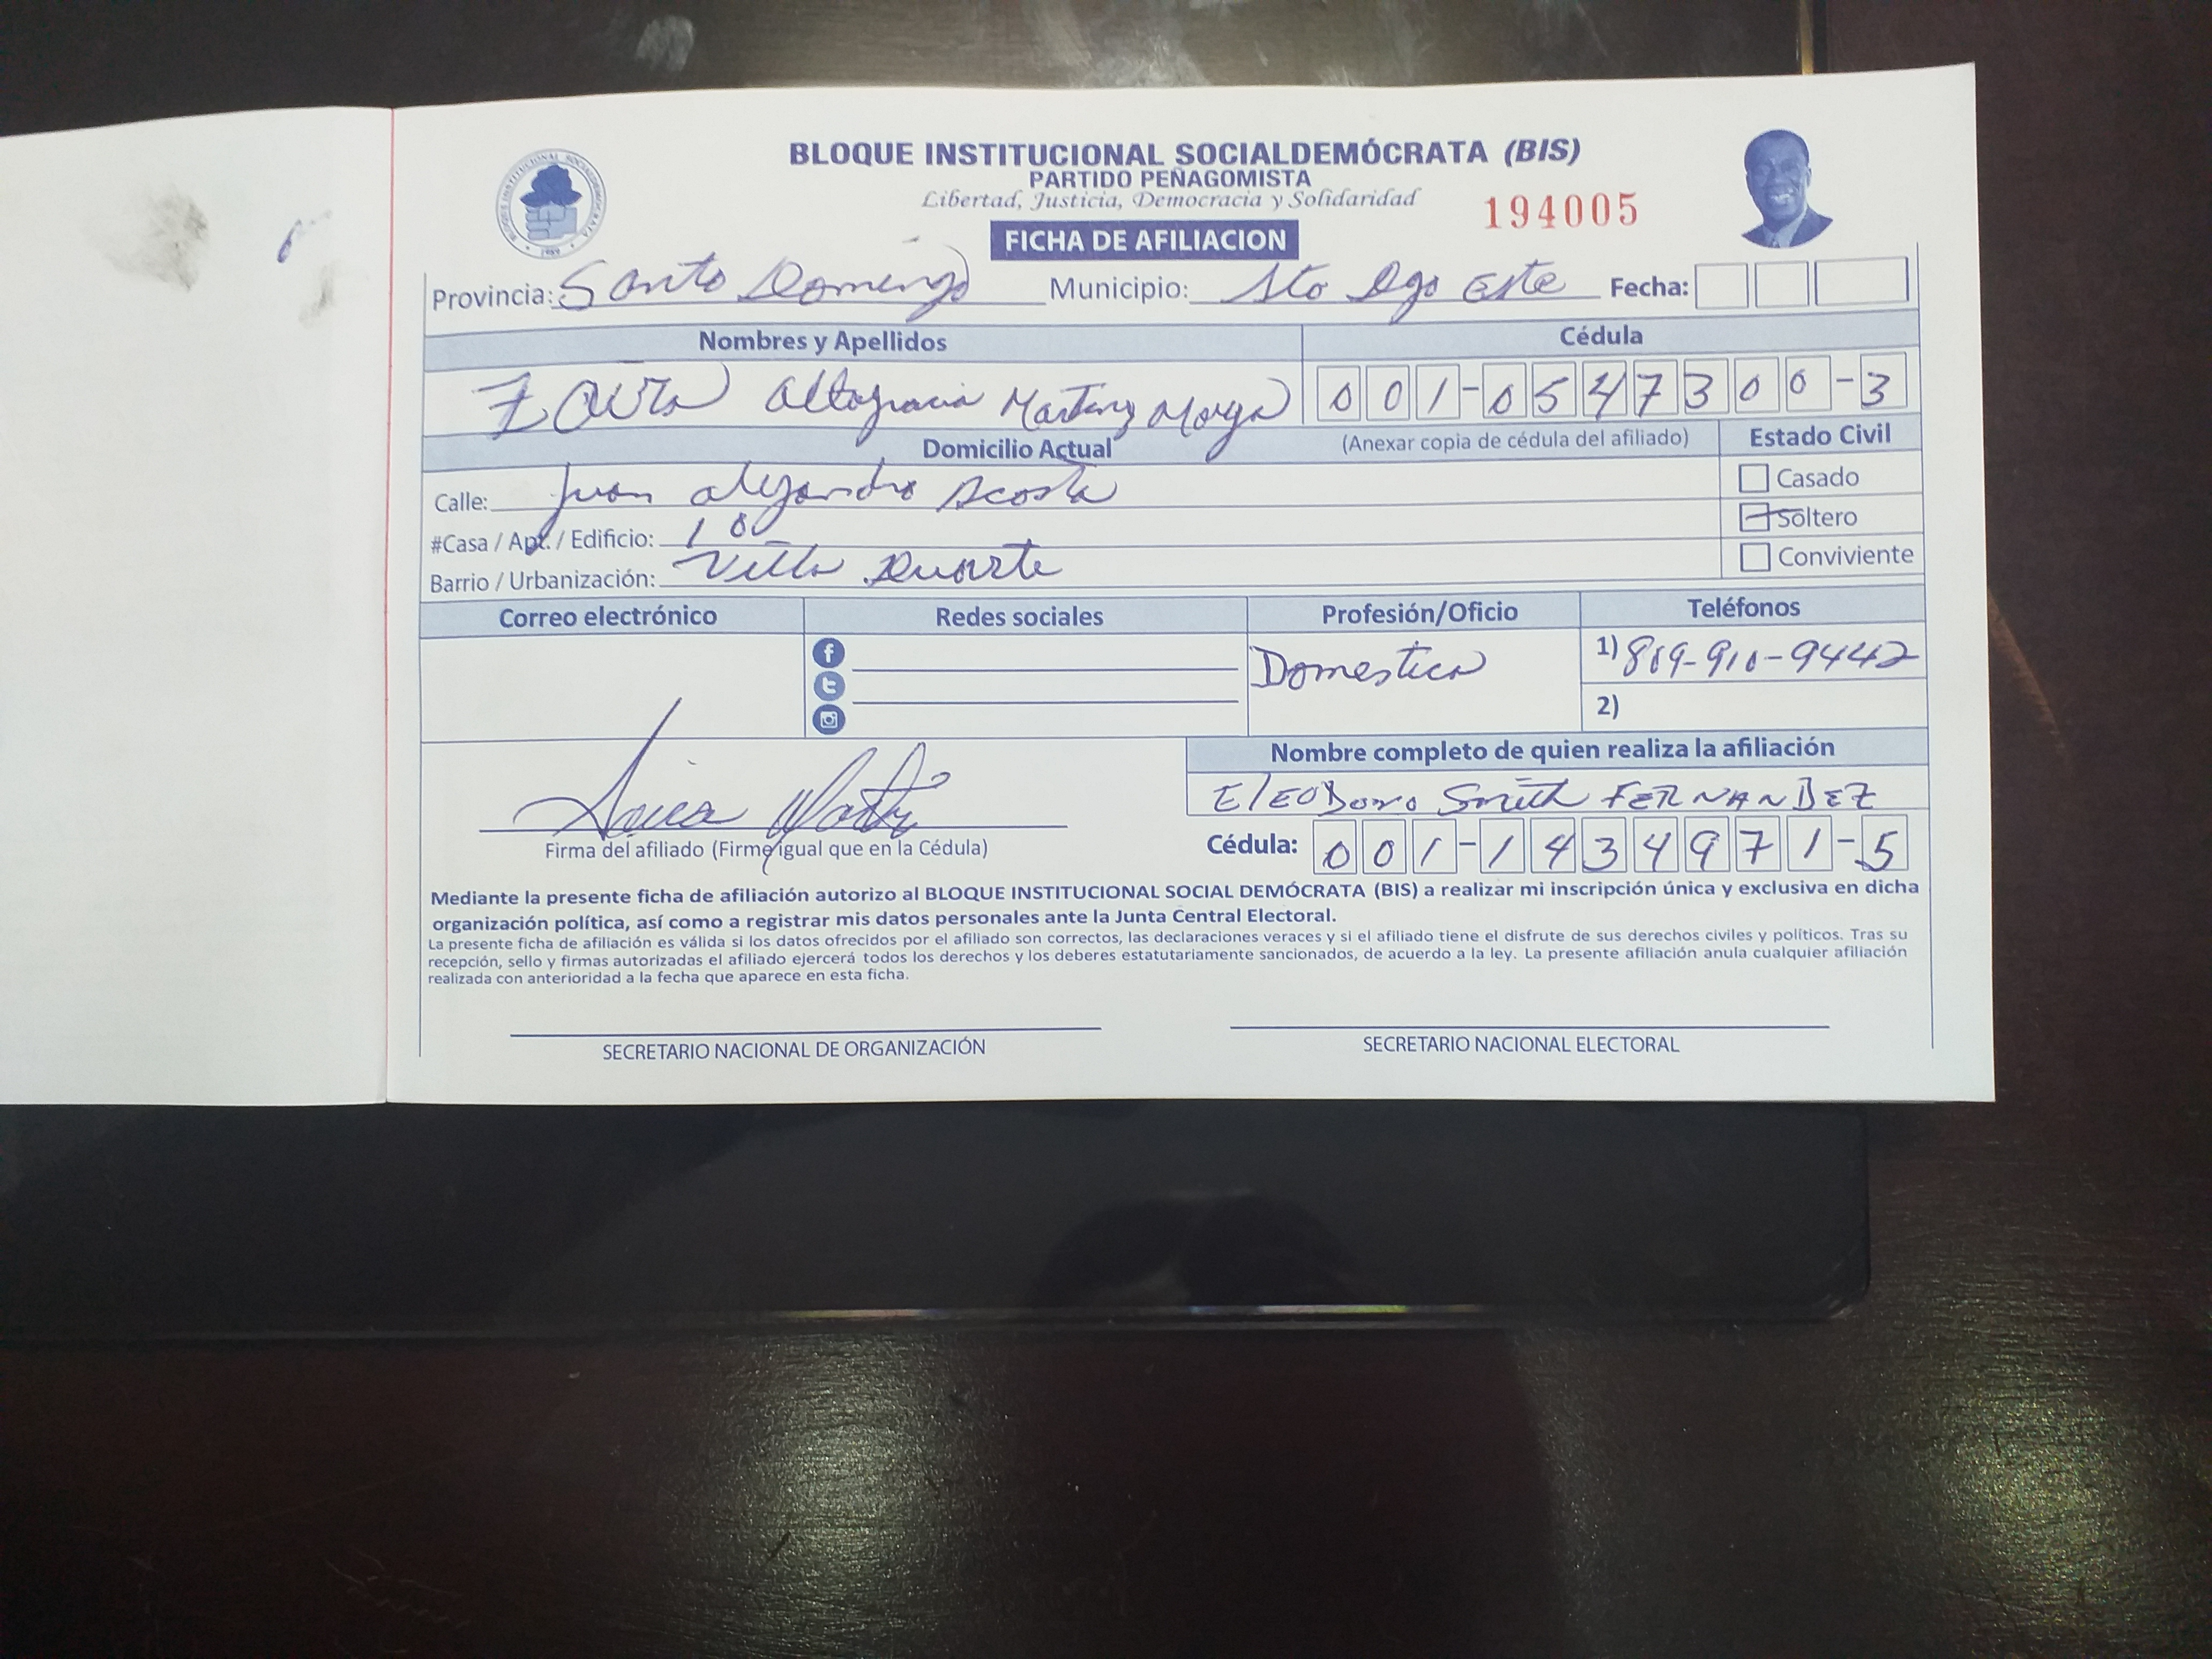 BLOQUE INSTITUCIONAL SOCIALDEMÓCRATA (BIS)
PARTIDO PEÑAGOMISTA
Libertad, Justicia, Democracia y Solidaridad
194005
FICHA DE AFILIACION
Provincia: Santo Domingo Municipio: Sto Dgo Este Fecha:
Nombres y Apellidos Cédula
Altagracia Martinez 001-0547300-3
Domicilio Actual (Anexar copia de cédula del afiliado) Estado Civil
Calle: Juan Alejandro Acosta Casado
#Casa / Apt. / Edificio: 100 Soltero
Barrio / Urbanización: Villa Duarte Conviviente
Correo electrónico Redes sociales Profesión/Oficio Teléfonos
Domestica 1) 809-910-9442
2)
Nombre completo de quien realiza la afiliación
ElEODoro Smith FERNANDEZ
Firma del afiliado (Firme igual que en la Cédula) Cédula: 001-1434971-5
Mediante la presente ficha de afiliación autorizo al BLOQUE INSTITUCIONAL SOCIAL DEMÓCRATA (BIS) a realizar mi inscripción única y exclusiva en dicha
organización política, así como a registrar mis datos personales ante la Junta Central Electoral.
La presente ficha de afiliación es válida si los datos ofrecidos por el afiliado son correctos, las declaraciones veraces y si el afiliado tiene el disfrute de sus derechos civiles y políticos. Tras su
recepción, sello y firmas autorizadas el afiliado ejercerá todos los derechos y los deberes estatutariamente sancionados, de acuerdo a la ley. La presente afiliación anula cualquier afiliación
realizada con anterioridad a la fecha que aparece en esta ficha.
SECRETARIO NACIONAL DE ORGANIZACIÓN SECRETARIO NACIONAL ELECTORAL